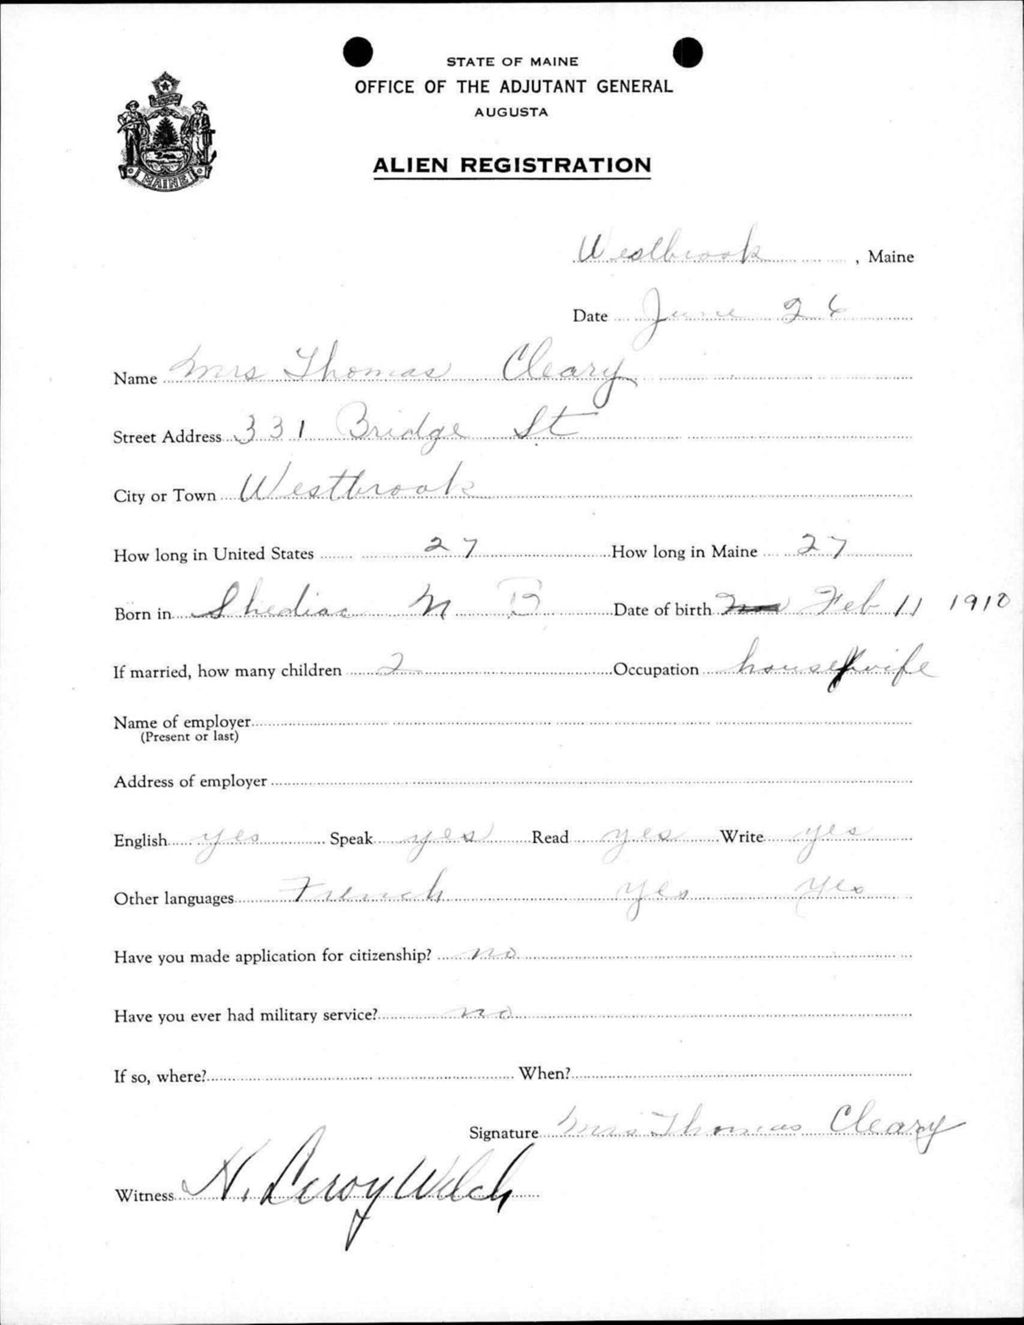 STATE OF MAINE
OFFICE OF THE ADJUTANT GENERAL
AUGUSTA
ALIEN REGISTRATION
MAINE
Westbrook, Maine
Date June 26
Name Mrs Thomas Cleary
Street Address 331 Bridge St
City or Town Westbrook
How long in United States 27 How long in Maine 27
Born in Shediac N B Date of birth Feb 11 1910
If married, how many children 2 Occupation housewife
Name of employer
(Present or last)
Address of employer
English yes Speak yes Read yes Write yes
Other languages French yes yes
Have you made application for citizenship? no
Have you ever had military service? no
If so, where? When?
Signature Mrs Thomas Cleary
Witness H. Leroy Welch